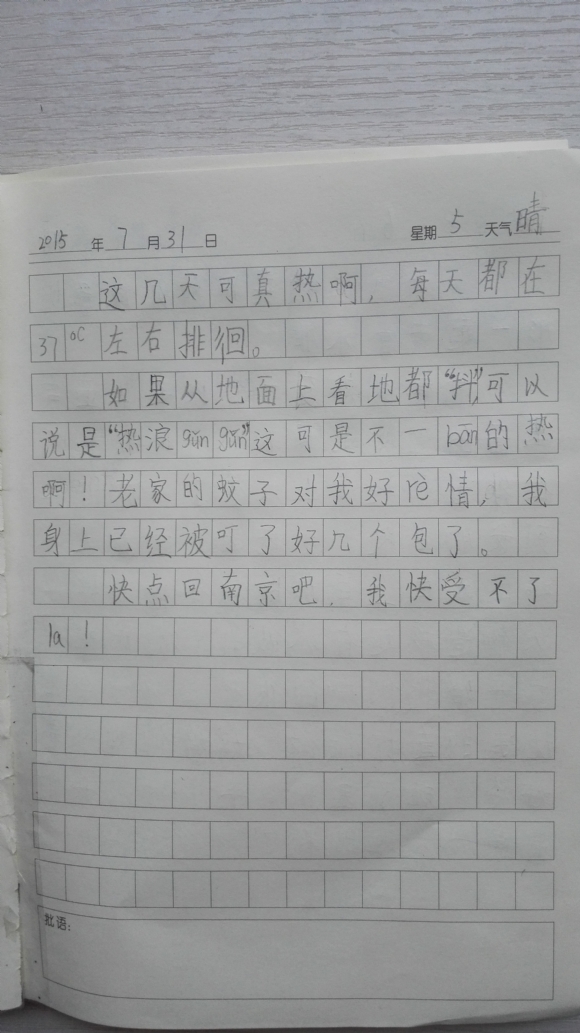 2015 年 7 月 31 日 星期 5 天气 晴
这几天可真热啊，每天都在
37℃左右排徊。
如果从地面上看地都“抖”可以
说是“热浪gǔn gǔn”这可是不一bān的热
啊！老家的蚊子对我好rè情，我
身上已经被叮了好几个包了。
快点回南京吧，我快受不了
la！
批语：